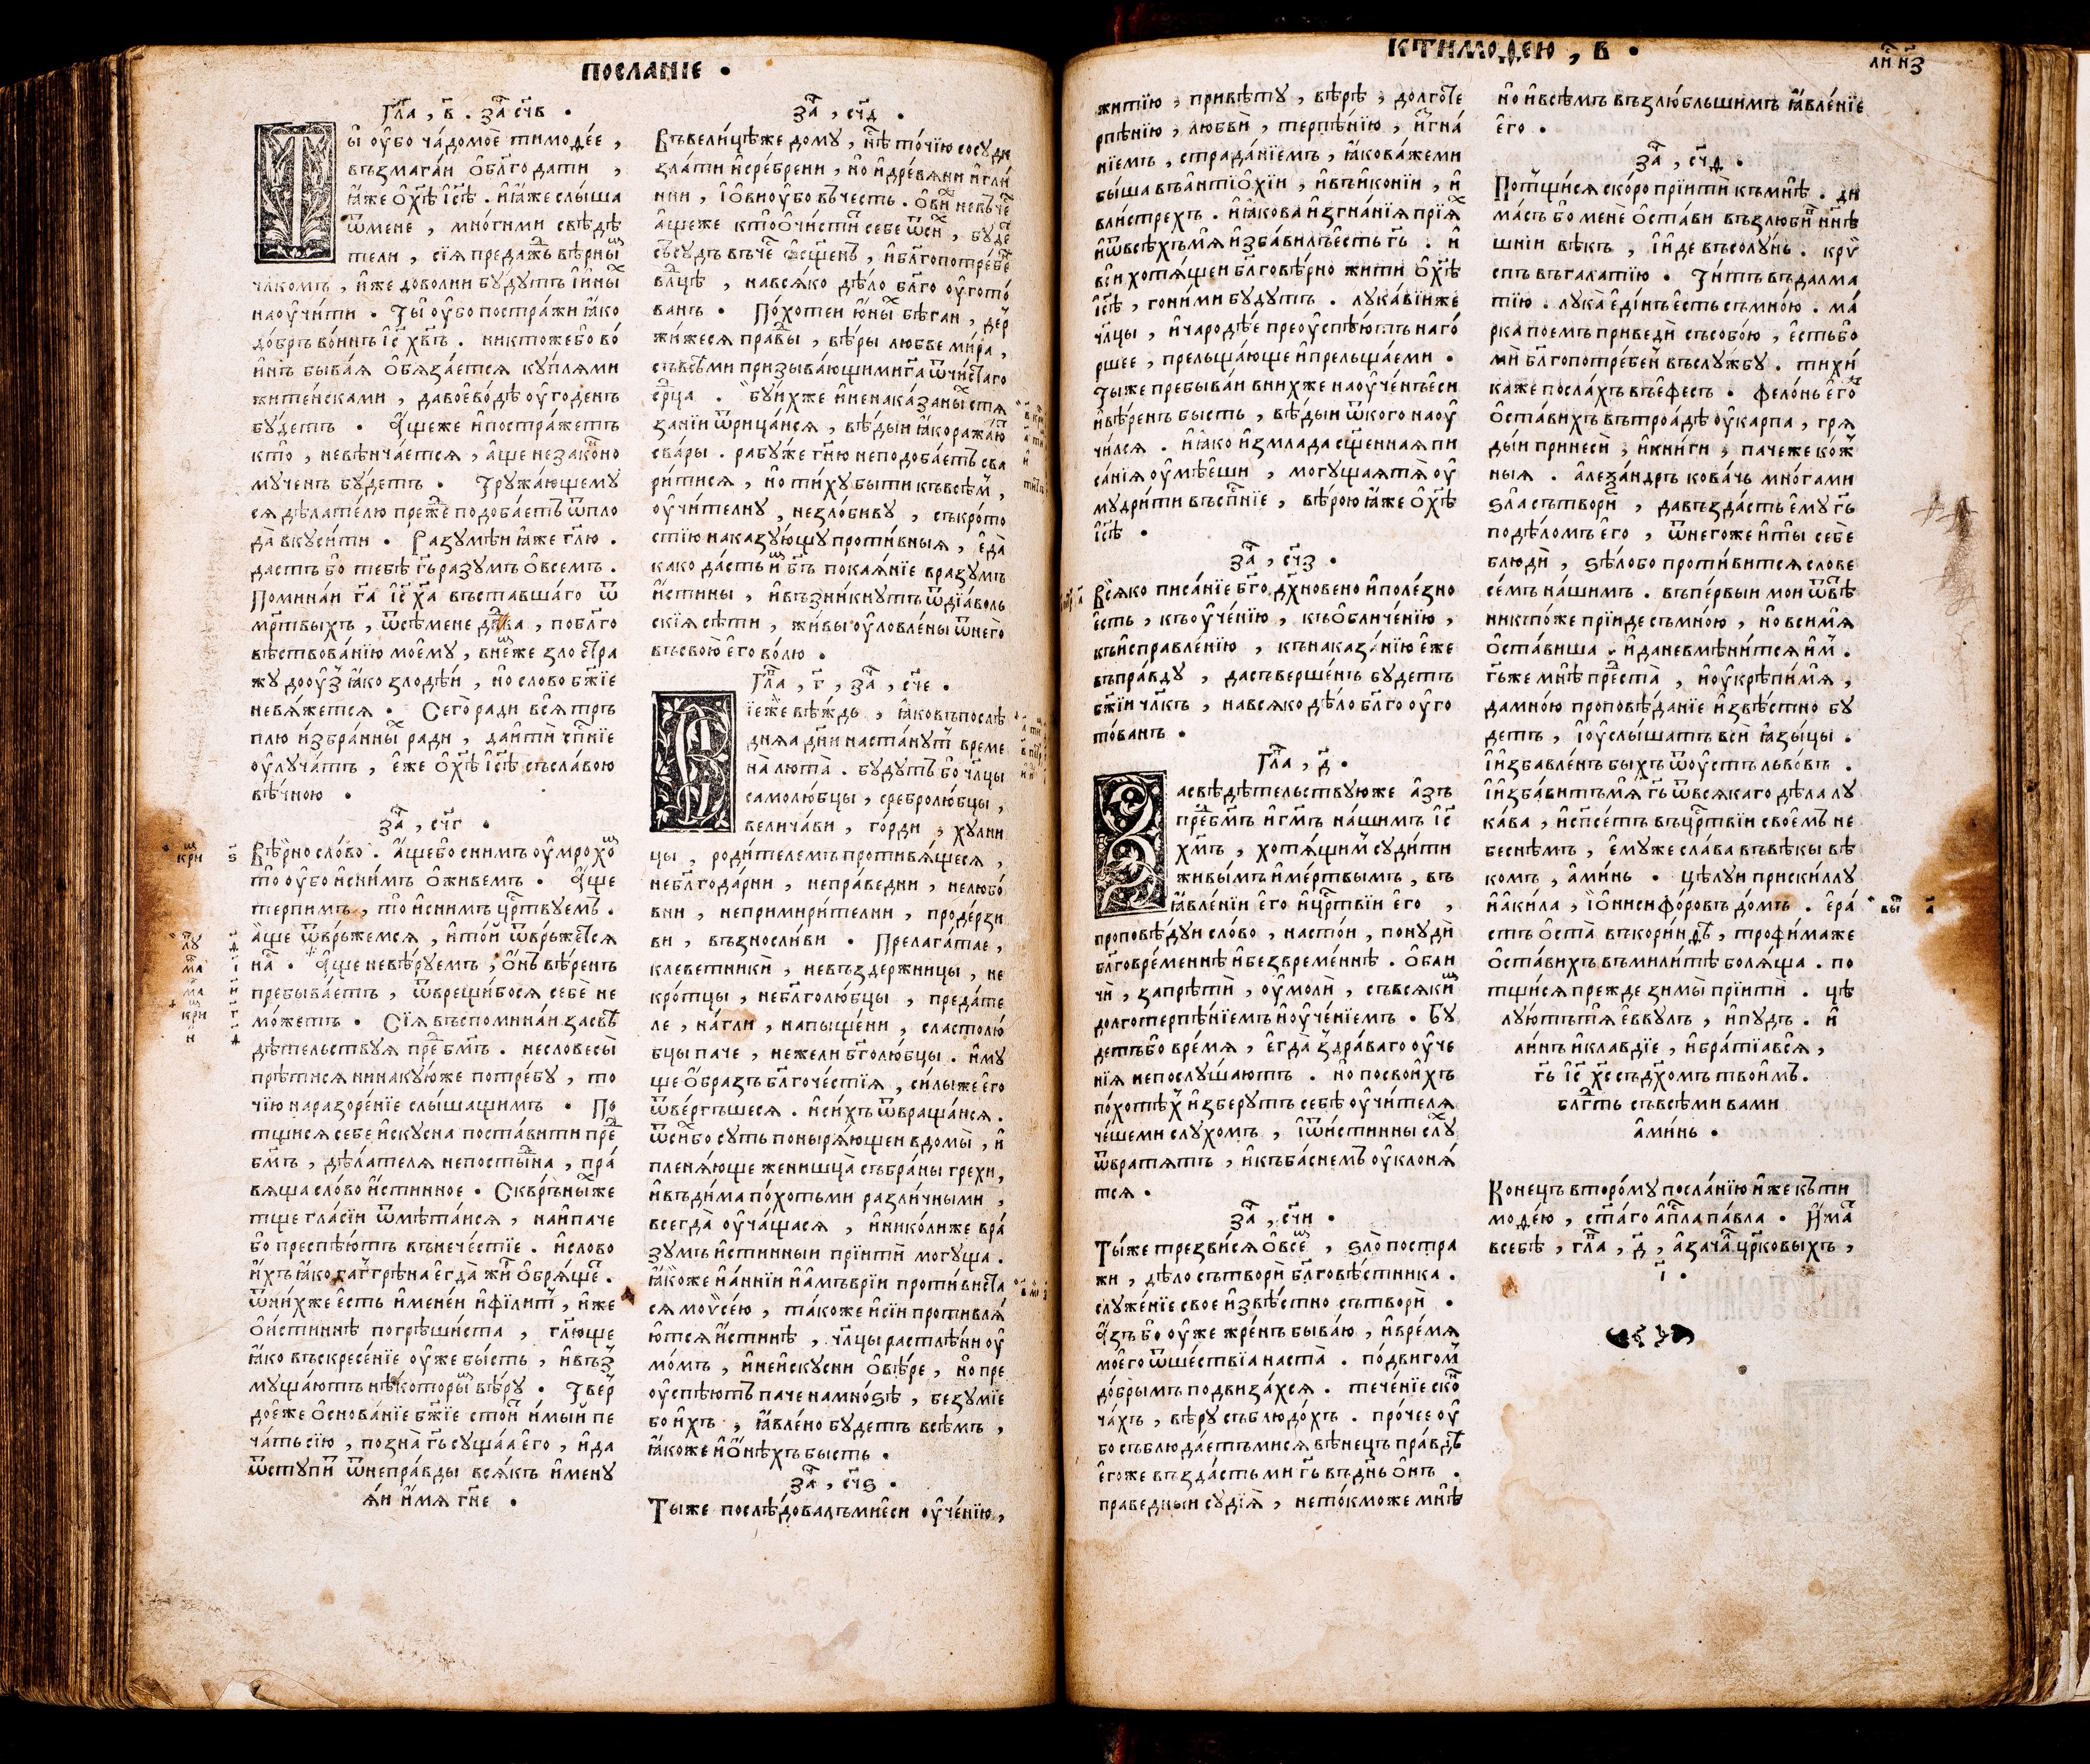 ПОСЛАНІЕ .
Гла҃, в҃. За҃ сч҃в .
Ты̀ ѹ҆бо ча́домоѐ тимоѳе́е ,
възмага́и ѻ҆бл҃годати ,
ꙗ҆́же ѻ҆хс҃ѣ і҆с҃ѣ . и҆ꙗ҆́же слы́ша
ѿмене , мно́гими свѣдѣ
тели , сїѧ предаж҃ъ вѣрны
чл҃комъ , и҆́же доволни бу́дутъ і҆ины
наѹ҆чи́ти . Ты̀ ѹ҆бо постра́жи ꙗ҆ко
до́бръ во́инъ і҆с҃ хв҃ъ . никтожебо во́
и҆нъ быва́ѧ ѡ҆бѧза́етсѧ ку́плѧми
жите́исками , давоево́дѣ ѹ҆го́денъ
бу́детъ . А҆́щеже и҆постра́жетъ
кто̀ , невѣнча́етсѧ , а҆́ще незако́но
му́ченъ бу́детъ . Тружа́ющему
сѧ дѣла́телю преж҃е подоба́етъ ѿпло
да̀ вкуси́ти . Разумѣ́и ꙗ҆́же гл҃ю .
да́стъ бо тебѣ̀ гь҃ ра́зумъ ѻ҆всемъ .
Помина́и га҃ і҆с҃ ха҃ въста́вшаго ѿ
мр҃твыхъ , ѿсѣ́мене дв҃да , побл҃го
вѣствова́нїю моему̀ , вне́же зло стра
жу доѹ҆з ꙗ҆ко злодѣ́и , но̀ сло́во бж҃їе
невѧ́жетсѧ . Сего̀ ради всѧ̀ тръ
плю и҆збра́нны ради , даи҆ті́и сп҃нїе
ѹ҆луча́тъ , є҆́же ѻ҆хс҃ѣ і҆с҃ѣ съсла́вою
вѣ́чною .
За҃ , сч҃г .
Вѣ́рно сло́во . а҆́щебо сни́мъ ѹ҆мрохо
то̀ ѹ҆бо и҆сни́мъ ѡ҆живе́мъ . А҆́ще
терпи́мъ , то̀ и҆сни́мъ цр҃твуемъ .
а҆́ще ѿврьже́мсѧ , и҆то́и ѿврьже́тсѧ
на́ . А҆́ще невѣ́руемъ , ѻ҆́нъ вѣренъ
пребыва́етъ , ѿврещи́босѧ себѐ не
мо́жетъ . Сїѧ̀ въспомина́и засвѣ
дѣ́тельствуѧ пре бм҃ъ . несловесы̀
прѣ́тисѧ нинаку́юже потре́бу , то
чїю наразоре́нїе слы́шащимъ . По
тщи́сѧ себѐ и҆скусна поста́вити пре
бм҃ъ , дѣ́лателѧ непосты́дна , пра́
вѧща сло́во и҆́стинное . Скврънны́ѧже
тще гла́сїи ѿмѣта́исѧ , наи҆па́че
бо преспѣ́ютъ вънече́стїе . и҆слово
и҆́хъ ꙗ҆ко гаггрѣ́на є҆гда̀ жи ѻ҆брѧ́ще .
ѿни́хже є҆сть и҆менеи и҆филит , и҆́же
ѻ҆и́стиннѣ погрѣши́ста , гл҃юще
ꙗ҆ко въскресе́нїе ѹ҆же бы́сть , и҆въз
муща́ютъ нѣ́которы вѣ́ру . Твер
дое҆же ѻ҆снова́нїе бж҃їе стои́ и҆мы́и пе
ча́ть сїю , позна̀ гь҃ су́щаѧ є҆го , и҆да
ѿступи́ ѿнепра́вды всѧ́къ и҆мену
ѧ́и и҆́мѧ гн҃е .
За҃ , сч҃д .
Въвели́цѣже дому̀ , нѣ то́чїю сосу́ди
зла́ти и҆сре́брени , но̀ и҆древѧни и҆гли́
нии , і҆ѻ҆вїи ѹ҆бо въче́сть . ѻ҆ви́ невъче
а҆́щеже кто̀ ѡ҆чи́стит себе ѿси , бу́де
съсу́дъ въче ѻ҆сщ҃енъ , и҆бл҃гопотре́бе
влц҃ѣ , навсѧ́ко дѣ́ло бл҃го ѹ҆гото́
ванъ . По́хотеи ю҆́ны бѣ́гаи , дер
жи́жесѧ пра́вды , вѣ́ры любве ми́ра ,
съвсѣ́ми призыва́ющими га҃ ѿчи́стаго
срд҃ца . буи́хже и҆ненака́заны стѧ
за́нїи ѿрица́исѧ , вѣ́дыи ꙗ҆ко ража́ю
сва́ры . рабу́же гн҃ю неподоба́етъ сва
ри́тисѧ , но̀ ти́ху быти къвсѣ́м ,
ѹ҆чи́телну , незло́биву , съкро́то
стїю наказу́ющу проти́вныѧ , є҆да̀
како да́сть и́ бг҃ъ покаѧ́нїе вразумъ
и҆́стины , и҆възни́кнутъ ѿдїа́воль
скїѧ сѣ́ти , жи́вы ѹ҆ловле́ны ѿнего̀
въсвою̀ є҆го во́лю .
Гла҃ , г҃ , За҃ , сч҃е .
Сїе́же вѣ́ждь , ꙗ҆ковъпослѣ
днѧѧ дни̑ наста́нут време
на̀ люта̀ . бу́дутъ бо чл҃цы
самолю́бцы , сребролю́бцы ,
велича́ви , го́рди , ху́лни
цы , роди́телемъ противѧ́щесѧ ,
небл҃года́рни , непра́ведни , нелюбо́
вни , непримири́телни , проде́рзи
ви , възносли́ви . Прелага́тае ,
клеветникѝ , невъздержницы , не
кро́тцы , небл҃голю́бцы , преда́те
ле , на́гли , напыще́ни , сластолю́
бцы паче , нежели бг҃олю́бцы . и҆му
ще ѻ҆́бразъ бл҃гоче́стїѧ , си́лыже є҆го
ѿве́ргъшесѧ . и҆си́хъ ѿвраща́исѧ .
ѿси́хбо суть поныря́ющеи вдомы̀ , и҆
пленѧ́юще женищца̀ събра́ны грехи,
и҆въди́ма по́хотьми разли́чными ,
всегда̀ ѹ҆ча́щасѧ , и҆нико́лиже вра́
зумъ и҆́стинныи прїитѝ могу́ща .
ꙗ҆́коже и҆а́ннїи и҆а҆мъврїи проти́виста
сѧ моѷсе́ю , та́коже и҆сїи противлѧ́
ютсѧ и҆́стинѣ , чл҃цы растлѣ́ни ѹ҆
мо́мъ , и҆неи҆ску́сни ѻ҆вѣ́ре , но̀ пре
ѹ҆спѣ́ютъ паче намно́ѕѣ , безу́мїе
бо и҆́хъ , ꙗ҆вле́но бу́детъ всѣ́мъ ,
ꙗ҆́коже и҆ѻ҆́нѣхъ бысть .
За҃ , сч҃ѕ .
Ты́же послѣ́довалъми є҆си ѹ҆че́нїю,
КТИМОѲЕЮ , В .
житїю̀ , привѣ́ту , вѣ́рѣ , долготе
рпѣ́нїю , любвѝ , терпѣ́нїю , и҆гна́
нїемъ , страда́нїемъ , ꙗ҆кова́жеми
бы́ша въа҆нтїѻ҆хїи , и҆въи҆ко́нїи , и҆
вли́стрехъ . и҆ꙗ҆кова и҆згна́нїѧ прїѧ́
и҆ѿвсѣ́хъмѧ и҆зба́вилъ є҆сть гь҃ . и҆
вси хотѧ́щеи бл҃говѣ́рно жити ѻ҆хс҃ѣ
і҆с҃ѣ , гони́ми бу́дутъ . лука́вїиже
чл҃цы , и҆чародѣ́е преѹ҆спѣ́ютъ наго́
ршее , прельща́юще и҆прельща́еми .
Ты́же пребыва́и вни́хже наѹ҆че́нъ є҆си
и҆вѣ́ренъ бысть , вѣ́дыи ѿкого наѹ҆
чи́лсѧ . и҆ꙗ҆ко и҆змла́да сщ҃е́ннаѧ пи
са́нїѧ ѹ҆мѣ́еши , могу́щаѧ тѧ̀ ѹ҆
мудри́ти въсп҃нїе , вѣ́рою ꙗ҆́же ѻ҆хс҃ѣ
і҆с҃ѣ .
За҃ , сч҃з .
Всѧ́ко писа́нїе бг҃о дх҃нове́но и҆поле́зно
є҆сть , къѹ҆че́нїю , къѻ҆бличе́нїю ,
къи҆справле́нїю , кънаказа́нїю є҆же
въпра́вду , дасъверше́нъ бу́детъ
бж҃їи чл҃къ , навсѧ́ко дѣ́ло бл҃го ѹ҆го
то́ванъ .
Гла҃ , д҃ .
Засвѣдѣ́тельствуюже а҆́зъ
пре бм҃ъ и҆гм҃ъ на́шимъ і҆с҃
хм҃ъ , хотѧ́щим суди́ти
живы́мъ и҆ме́ртвымъ , въ
ꙗ҆вле́нїи є҆го и҆цр҃твїи є҆го ,
пропове́дуи сло́во , насто́и , понудѝ
бл҃говре́меннѣ и҆безвре́меннѣ . ѻ҆бли
чѝ , запрѣтѝ , ѹ҆молѝ , съвсѧ́ки
долготерпѣ́нїемъ и҆ѹ҆че́нїемъ . Бу
детъбо вре́мѧ , є҆гда̀ здра́ваго ѹ҆че
нїѧ непослу́шаютъ . но̀ посвои́хъ
по́хотѣх и҆зберу́тъ себѣ̀ ѹ҆чи́телѧ
че́шеми слу́хомъ , і҆ѿи҆́стинны слу́
ѿвратѧ́тъ , и҆къба́снемъ ѹ҆клонѧ́
тсѧ .
За҃ , сч҃и .
Ты́же трезви́сѧ ѻ҆всѐ , ѕло̀ постра
жи , дѣ́ло сътворѝ бл҃говѣ́стника .
служе́нїе свое и҆звѣ́стно сътворѝ .
А҆́зъ бо ѹ҆же жре́нъ быва́ю , и҆вре́мѧ
моего̀ ѿше́ствїа наста̀ . по́двигом
до́брымъ подвиза́хсѧ . тече́нїе ско
ча́хъ , вѣ́ру съблюдо́хъ . про́чее ѹ҆
бо съблюда́етъмисѧ вѣне́цъ пра́вды
є҆го́же възда́сть ми гь҃ въдн҃ь ѻ҆́нъ .
пра́ведныи судїѧ̀ , нето́кможе мнѣ̀
но̀ и҆всѣ́мъ възлю́бльшимъ ꙗ҆вле́нїе
є҆го .
За҃ , сч҃д .
Потщи́сѧ ско́ро прїитѝ къмнѣ̀ . ди
ма́съ бо менѐ ѻ҆ста́ви възлюби́ нн҃ѣ
шнїи вѣ́къ , і҆и́де въсолу́нь . кри
спъ въгала́тїю . Ти́тъ въдалма
тїю . лука̀ є҆ди́нъ є҆сть съмно́ю . ма́
рка пое́мъ приведѝ съсобо́ю , є҆стьбо
мѝ бл҃гопотре́бен въслу́жбу . тихи́
ка́же посла́хъ въє҆фе́съ . фело́нь є҆го
ѻ҆ста́вихъ вътроа́дѣ ѹ҆ка́рпа , грѧ
ды́и принесѝ , и҆кни́ги , паче́же ко́ж
ныѧ . а҆леѯа́ндръ кова́чь мно́гами
ѕла сътвори̑ , давъзда́сть є҆му гь҃
подѣ́ломъ є҆го , ѿнего́же и҆ты̀ себѐ
блюдѝ , ѕѣло́бо проти́витсѧ слове
се́мъ на́шимъ . въпе́рвыи мои ѿвѣ
никто́же прїи́де съмно́ю , но̀ вси мѧ
ѻ҆ста́виша . и҆даневмѣни́тсѧ и҆м .
гь҃же мнѣ̀ преста̀ , и҆ѹ҆крѣпи́мѧ ,
дамно́ю проповѣ́данїе и҆звѣ́стно бу
детъ , і҆ѹ҆слы́шатъ всѝ ꙗ҆зы́цы .
і҆и҆збавле́нъ быхъ ѿѹ҆стъ льво́въ .
і҆и҆зба́витъмѧ гь҃ ѿвсѧ́каго дѣ́ла лу
ка́ва , и҆сп҃се́тъ въцр҃твїи свое́мъ не
бе́снѣмъ , є҆му́же сла́ва въвѣ́кы вѣ
комъ , а҆ми́нь . цѣлу́и приски́ллу
и҆а҆ки́ла , і҆ѻ҆нисифо́ровъ до́мъ . є҆ра́
стъ ѻ҆ста̀ въкори́нѳѣ , трофи́маже
ѻ҆ста́вихъ въмили́тѣ болѧ́ща . по
тщи́сѧ пре́жде зимы̀ прїитѝ . цѣ
лу́ютътѧ є҆ввулъ , и҆пу́дъ . и҆
ли́нъ и҆кла́вдїе , и҆бра́тїа всѧ̀ ,
гь҃ і҆с҃ хс҃ съдх҃омъ твои́мъ .
блгд҃ть съвсѣ́ми вами
а҆ми́нь .
Коне́цъ второ́му посла́нїю и҆́же къти
моѳе́ю , ст҃аго а҆пл҃а па́вла . И҆́ма
всебѣ̀ , гла҃ , д҃ , а҆зача́ цр҃ковыхъ ,
і҃ .